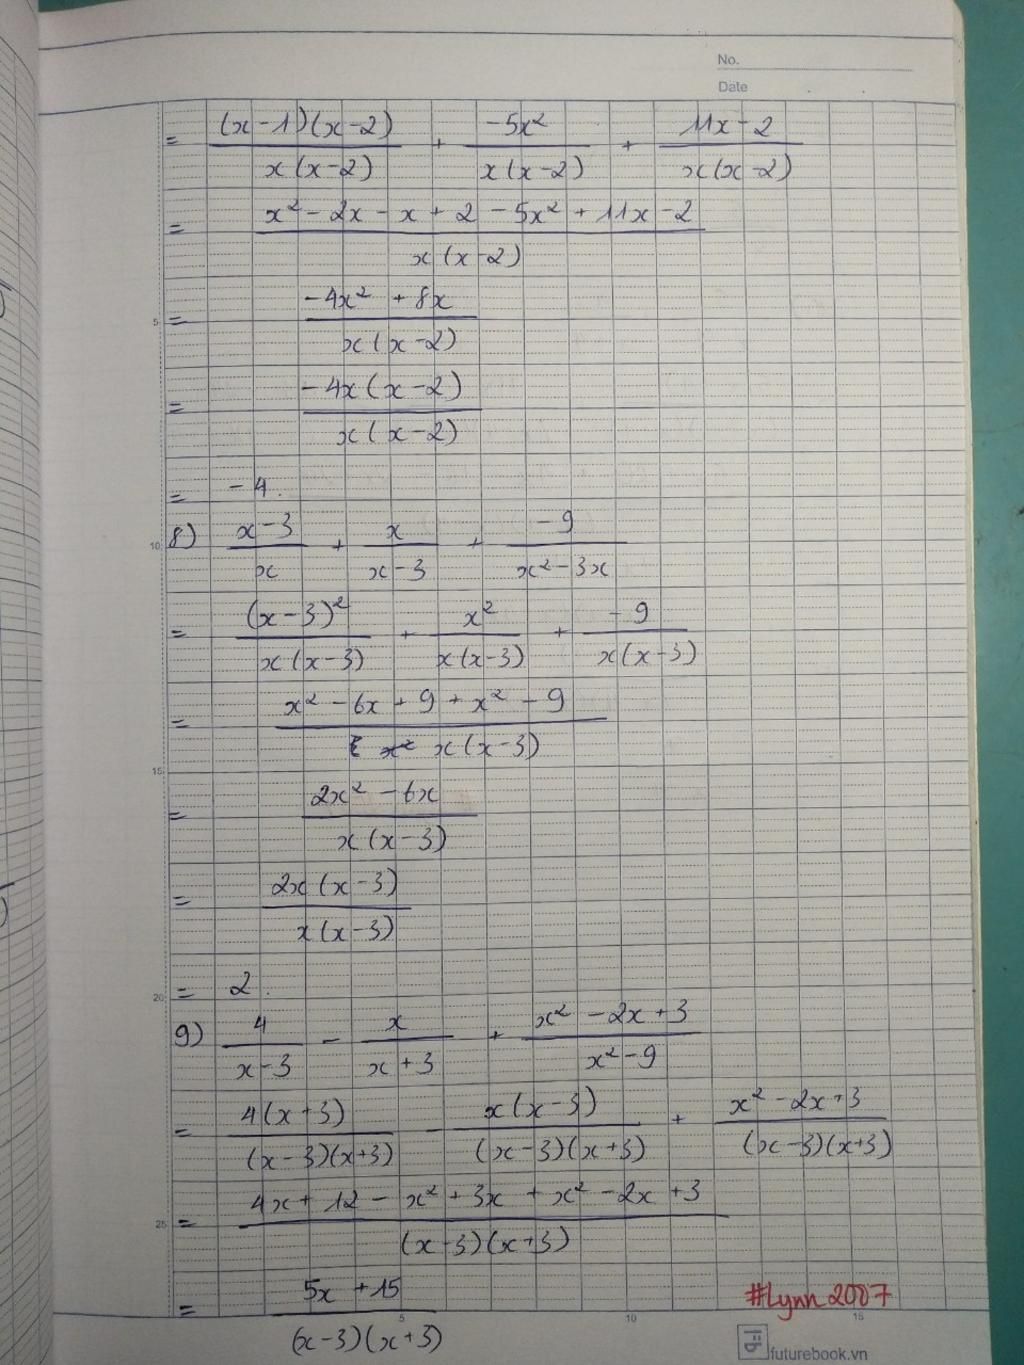 No.
Date
= (x-1)(x-2)/x(x-2) + -5x²/x(x-2) + 11x-2/x(x-2)
= x² - 2x - x + 2 - 5x² + 11x - 2/x(x-2)
5
= -4x² + 8x/x(x-2)
= -4x(x-2)/x(x-2)
= -4.
10
8) x-3/x + x/x-3 + -9/x²-3x
= (x-3)²/x(x-3) + x²/x(x-3) + -9/x(x-3)
= x² - 6x + 9 + x² - 9/x(x-3)
15
= 2x² - 6x/x(x-3)
= 2x(x-3)/x(x-3)
20
= 2.
9) 4/x-3 - x/x+3 + x² - 2x + 3/x²-9
= 4(x+3)/(x-3)(x+3) - x(x-3)/(x-3)(x+3) + x² - 2x + 3/(x-3)(x+3)
25
= 4x + 12 - x² + 3x + x² - 2x + 3/(x-3)(x+3)
= 5x + 15/(x-3)(x+3)
#Lynn2007
5 10 15
futurebook.vn